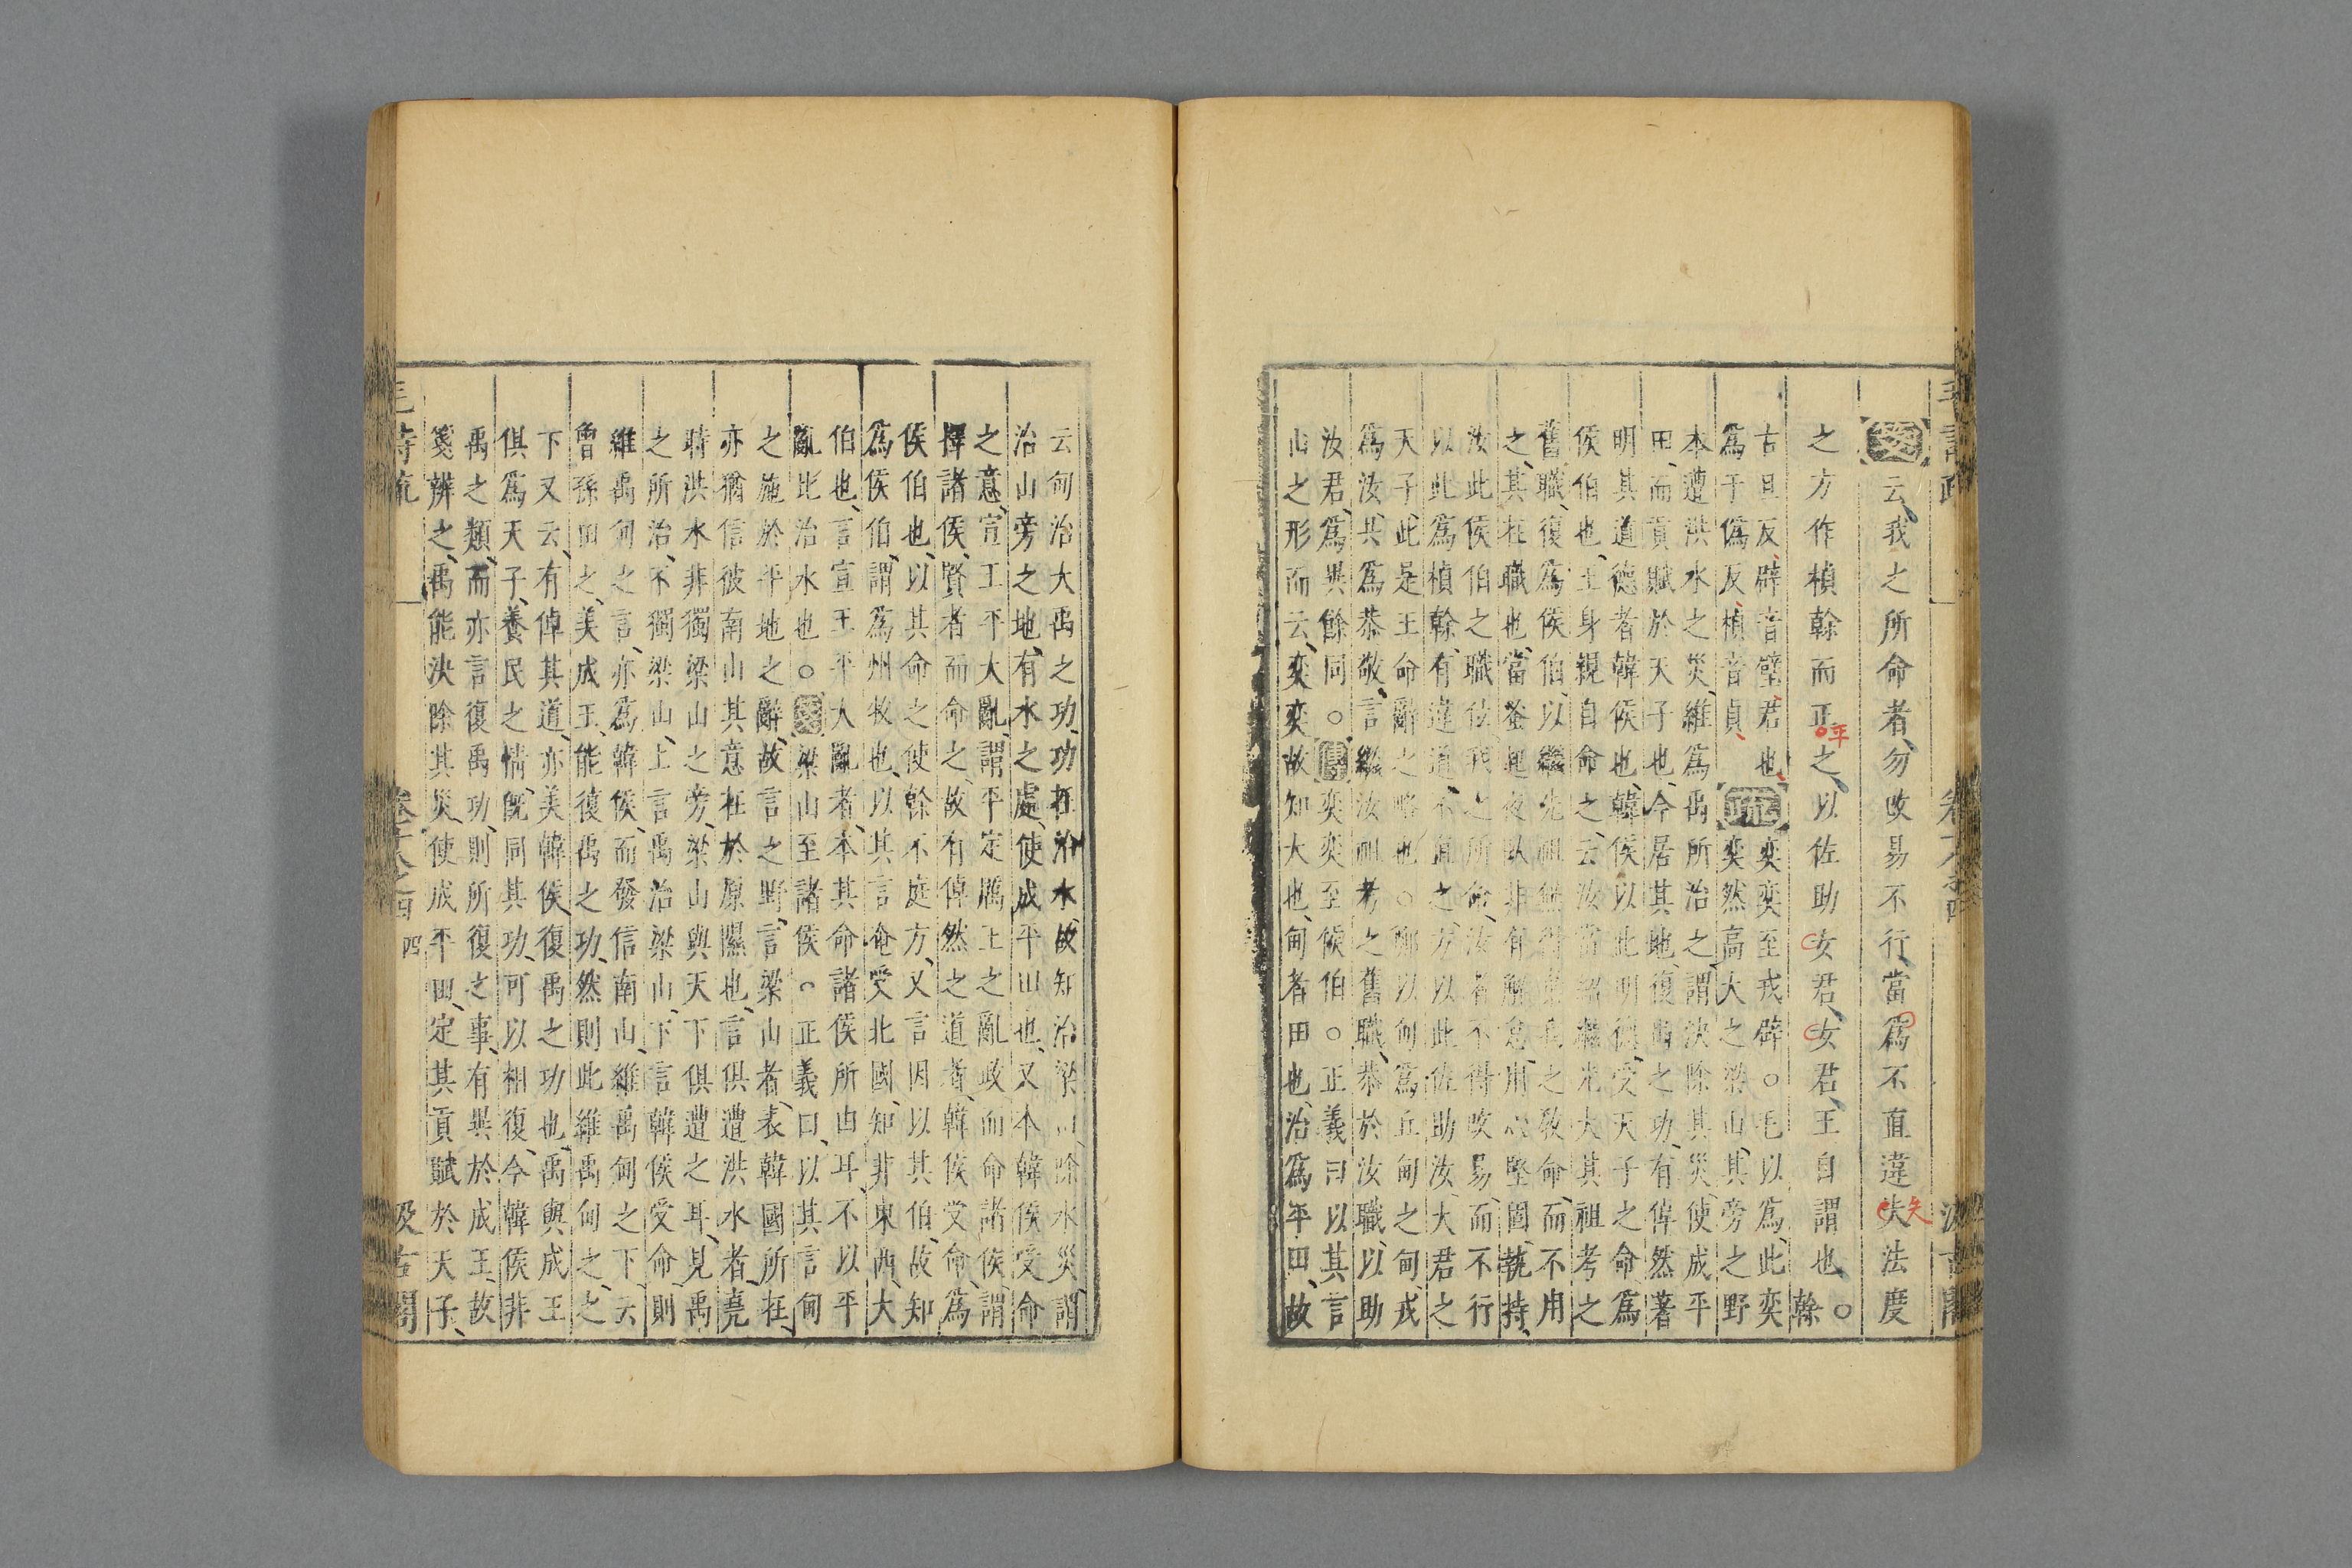 箋云我之所命者勿改易不行當爲不直違失法度
之方作楨幹而正之以佐助女君女君王自謂也○幹
古旦反辟音璧君也
爲于僞反楨音貞
疏奕奕至戎辟○毛以爲此奕
奕然高大之梁山其旁之野
本遭洪水之災維爲禹所治之謂決除其災使成平
田而貢賦於天子也今居其地復禹之功有倬然著
明其道德者韓侯也韓侯以此明德受天子之命爲
侯伯也王身親自命之云汝當紹繼光大其祖考之
舊職復爲侯伯以繼先祖無得棄我之敎命而不用
之其在職也當蚤起夜臥非有解怠用心堅固執持
汝此侯伯之職使我之所命汝者不得改易而不行
以此爲楨幹有違道不直之方以此佐助汝大君之
天子此是王命辭之略也○鄭以甸爲丘甸之甸戎
爲汝共爲恭敬言繼汝祖考之舊職恭於汝職以助
汝君爲異餘同○傳奕奕至侯伯○正義曰以其言
山之形而云奕奕故知大也甸者田也治爲平田故
云甸治大禹之功功在治水故知治梁山除水災謂
治山旁之地有水之處使成平田也又本韓侯受命
之意宣王平大亂謂平定厲王之亂政而命諸侯謂
擇諸侯賢者而命之故有倬然之道者韓侯受命爲
侯伯也以其命之使幹不庭方又言因以其伯故知
爲侯伯謂爲州牧也以其言奄受北國知非東西大
伯也言宣王平大亂者本其命諸侯所由耳不以平
亂比治水也○箋梁山至諸侯○正義曰以其言甸
之施於平地之辭故言之野言梁山者表韓國所在
亦猶信彼南山其意在於原隰也言俱遭洪水者堯
時洪水非獨梁山之旁梁山與天下俱遭之耳見禹
之所治不獨梁山上言禹治梁山下言韓侯受命則
維禹甸之言亦爲韓侯而發信南山維禹甸之下云
曾孫田之美成王能復禹之功然則此維禹甸之之
下又云有倬其道亦美韓侯復禹之功也禹與成王
俱爲天子養民之情旣同其功可以相復今韓侯非
禹之類而亦言復禹功則所復之事有異於成王故
箋辨之禹能決除其災使成平田定其貢賦於天子
毛詩疏 卷十八之四 四 汲古閣